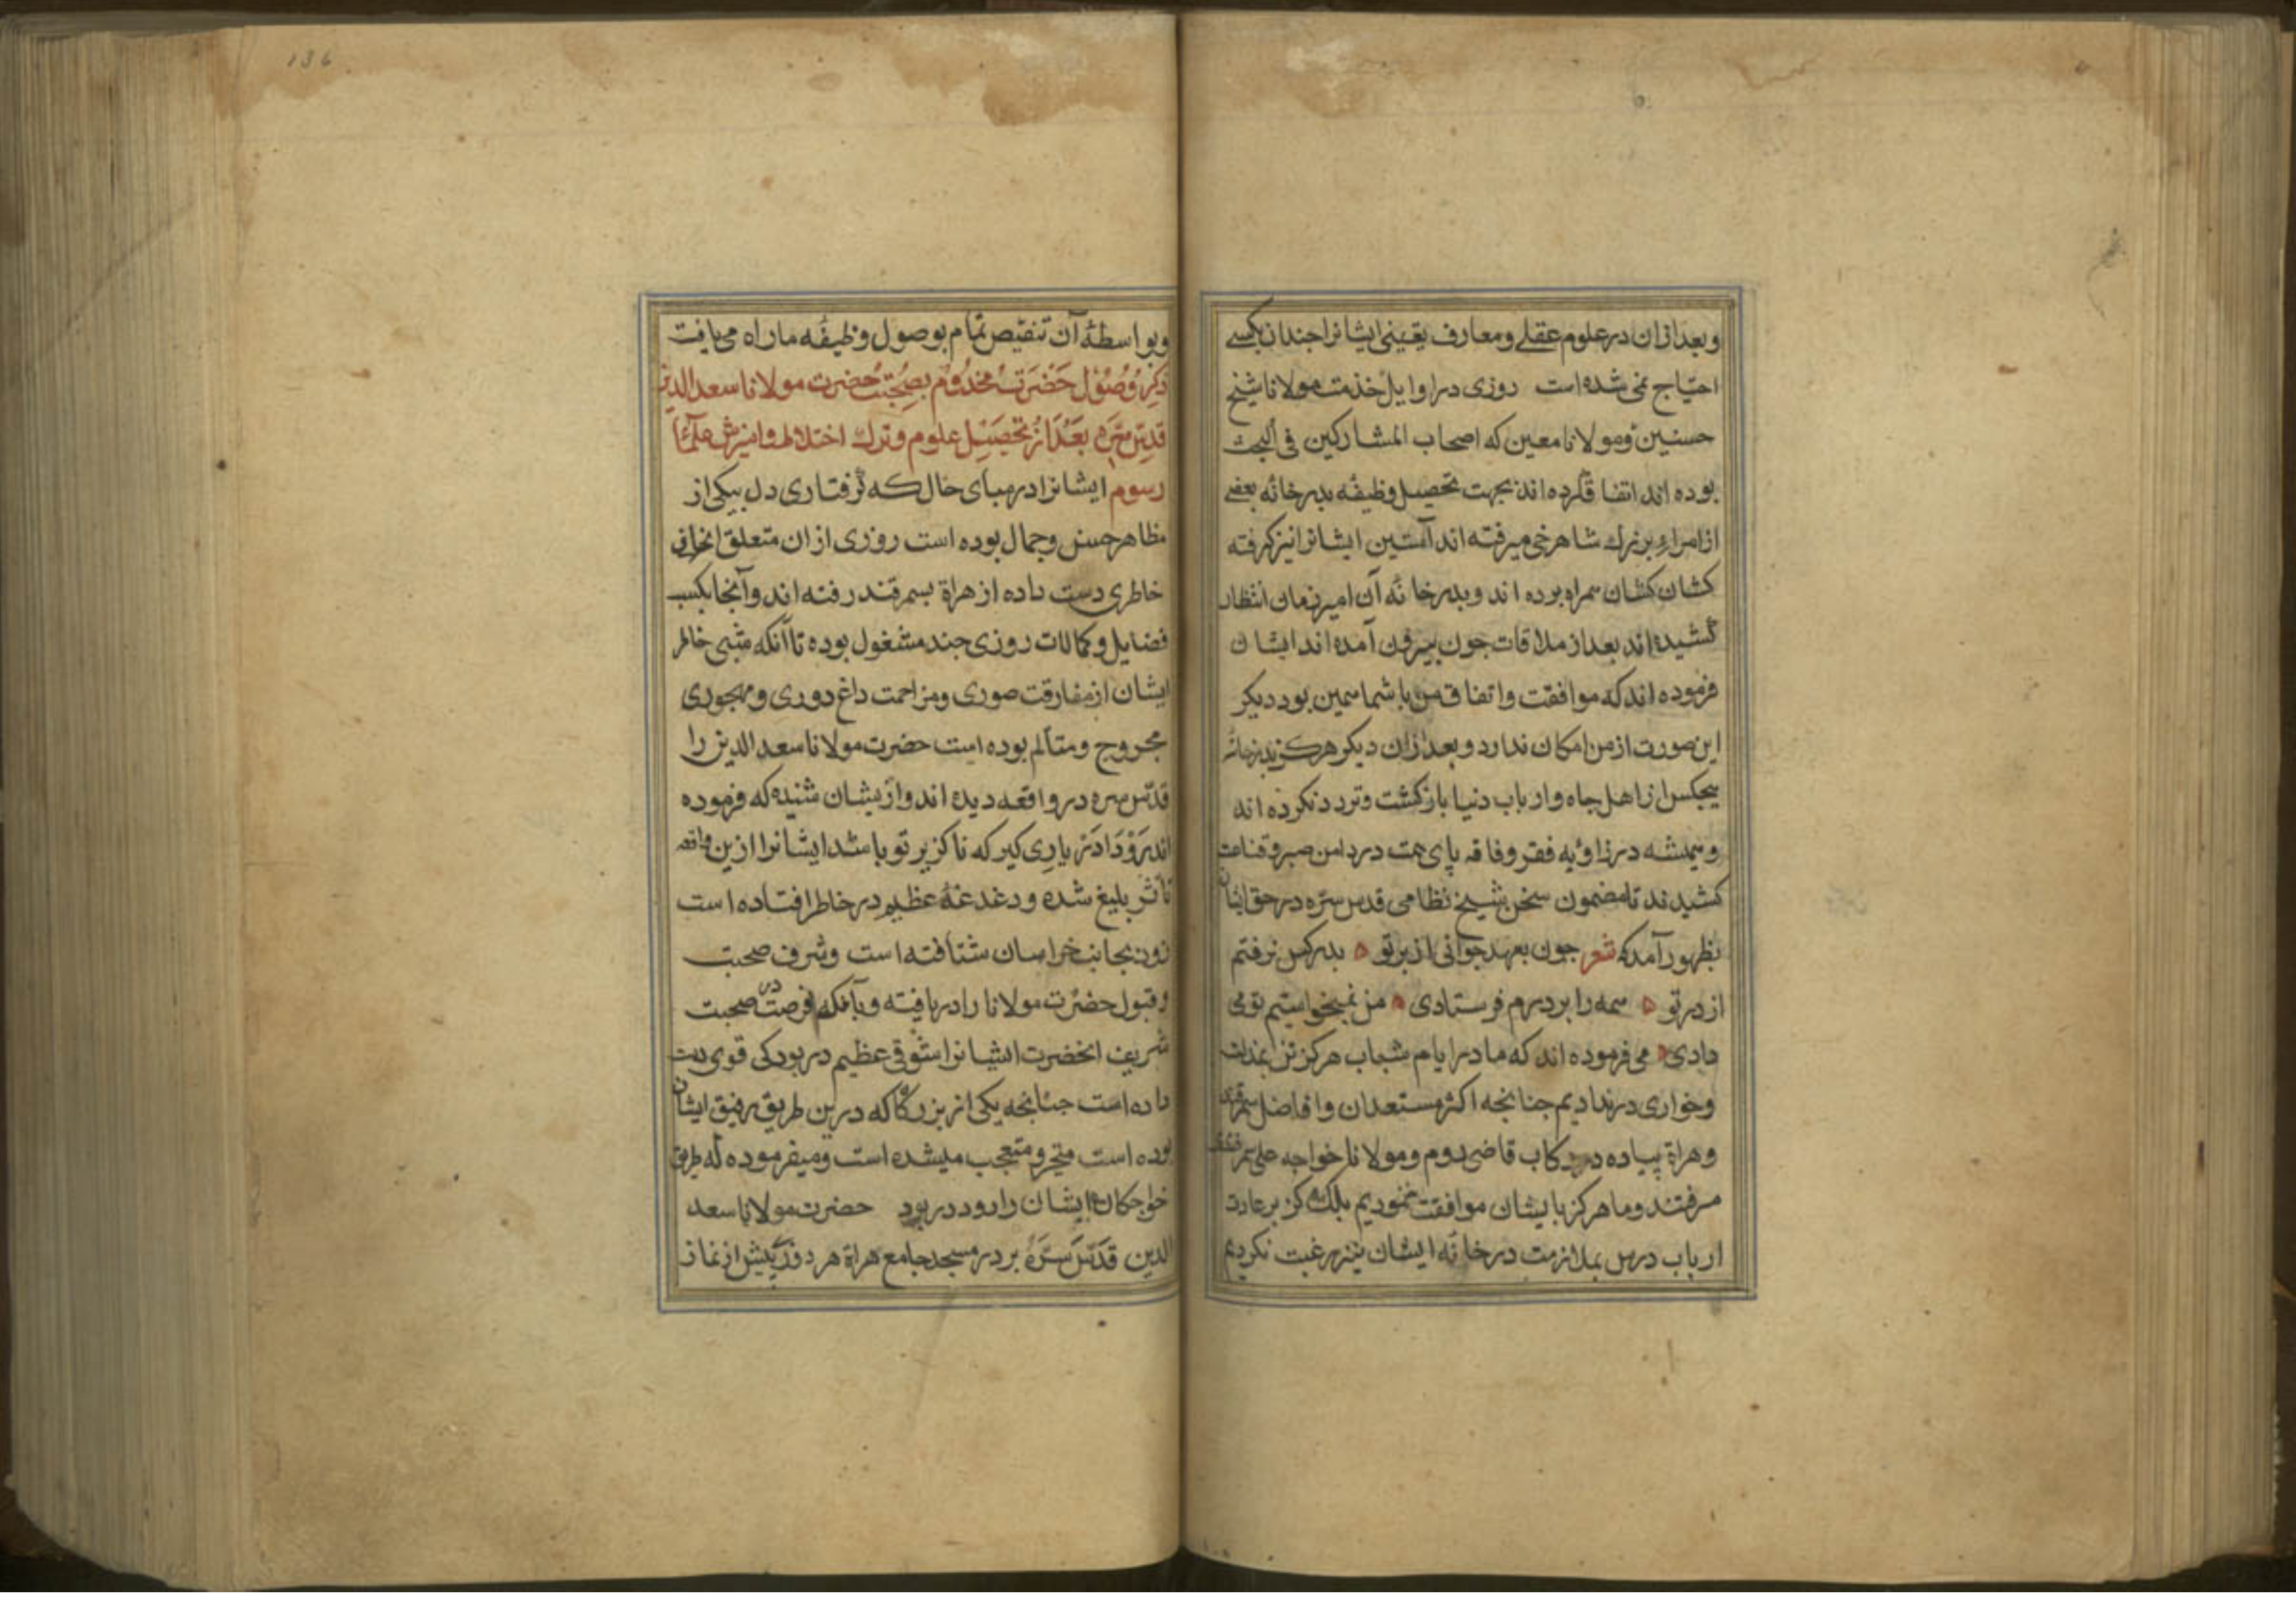 وبعد ازان در علوم عقلے ومعارف یقینی ایشانرا جندان بکسے
احتیاج نمی شده است روزی در اوایل خدمت مولانا شیخ
حسنین ومولانا معین که اصحاب المشارکین فی البحث
بوده اند اتفاق کرده اند بجهت تحصیل وظیفه بدر خانه بعضے
از امراء بزرك شاهرخی میرفته اند آستین ایشانرا نیز کرفته
کشان کشان همراه برده اند وبدر خانه آن امیر زمان انتظار
کشیده اند بعد از ملاقات جون بیرون آمده اند ایشان
فرموده اند که موافقت واتفاق من باشما همین بود دیکر
این صورت از من امکان ندارد وبعد ازان دیکر هرکز بدر خانه
هیجکس از اهل جاه وارباب دنیا باز کشت وتردد نکرده اند
وهمیشه در زاویه فقر وفاقه پای همت در دامن صبر وقناعت
کشیدند تا مضمون سخن شیخ نظامی قدس سره در حق ایشان
بظهور آمد که شعر جون بعهد جوانی از بر تو ٥ بدر کس نرفتم
از در تو ٥ همه را بر درم فرستادی ٥ من نمیخواستم تو می
دادی ٥ می فرموده اند که ما در ایام شباب هرکز تن بمذلت
وخواری در ندادیم جنانجه اکثر مستعدان وافاضل سمرقند
وهراة پیاده در رکاب قاضی روم ومولانا خواجه علی سمرقندی
میرفتند وما هرکز بایشان موافقت ننمودیم بلکه هرکز بر عادت
ارباب درس بملازمت در خانه ایشان نیز رغبت نکردیم
وبواسطهٔ آن تنقیص تمام بوصول وظیفه ما راه می یافت
ذکر وصول حضرت مخدوم بصحبت حضرت مولانا سعد الدین
قدس سره بعد از تحصیل علوم وترك اختلاط وامیزش علمآء
رسوم ایشانرا در مبای حال که کرفتاری دل بیکی از
مظاهر حسن وجمال بوده است روزی ازان متعلق انحراف
خاطری دست داده از هراة بسمرقند رفته اند وآنجا بکسب
فضایل وکمالات روزی جند مشغول بوده تا آنکه شبی خاطر
ایشان از مفارقت صوری ومزاحمت داغ دوری ومهجوری
مجروح ومتالم بوده است حضرت مولانا سعد الدین را
قدس سره در واقعه دیده اند وازیشان شنیده که فرموده
اند رو دادر یاری کیر که ناکزیر تو باشد ایشانرا ازین واقعه
تأثر بلیغ شده ودغدغهٔ عظیم در خاطر افتاده است
زود بجانب خراسان شتافته است وشرف صحبت
وقبول حضرت مولانا را دریافته وبآنکه فرصت در صحبت
شریف انحضرت ایشانرا شوقی عظیم در بودکی قوی دست
داده است جنانجه یکی از بزرکان که درین طریق رفیق ایشان
بوده است متحیر ومتعجب میشده است ومیفرموده که طریق
خواجکان ایشان را زود در ربود حضرت مولانا سعد
الدین قدس سره بر در مسجد جامع هراة هر روز پیش از نماز
136